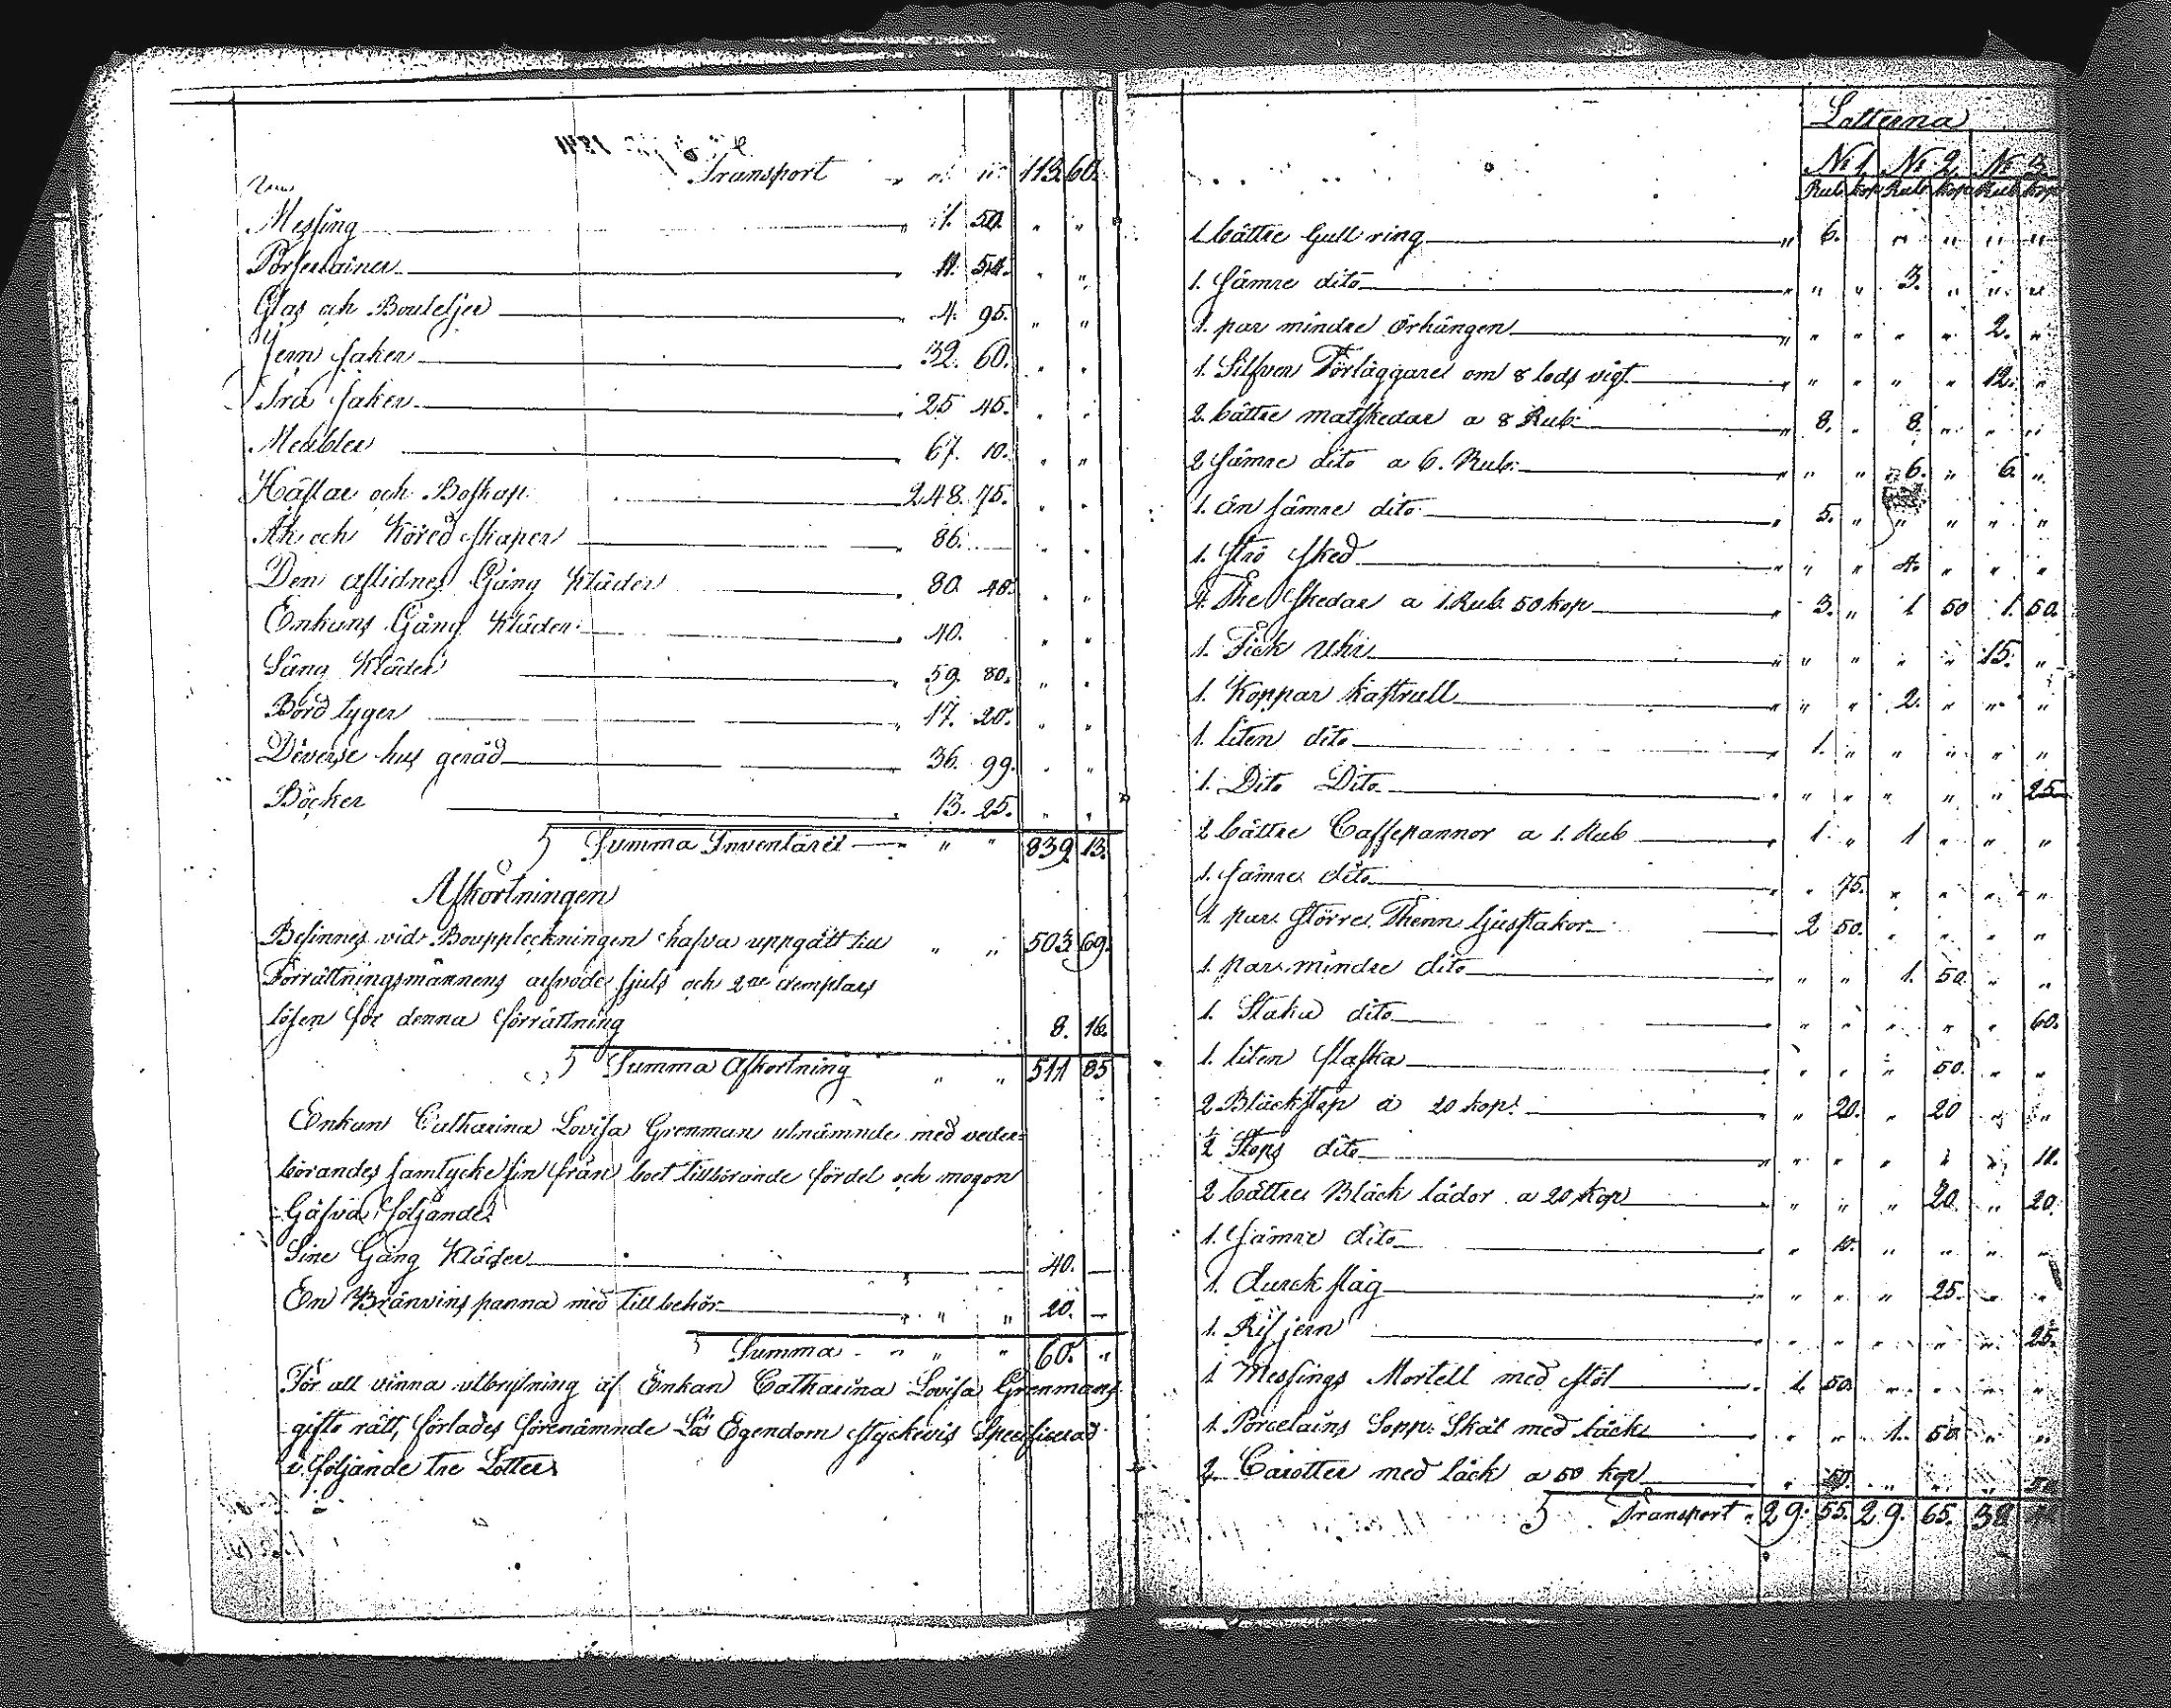 Transport " " " 113. 60.
Messing " 1. 50. " "
Porselainer " 11. 54. " "
Glas och Bouteljer " 4. 95. " "
Jern saker " 32. 60. " "
Trä saker " 25 45. " "
Meubler " 67. 10. " "
Hästar och Boskap " 248. 75. " "
Åk och Köred skaper " 86. — " "
Den aflidnes Gång Kläder " 80. 40. " "
Enkans Gång Kläder " 40. " "
Säng Kläder " 59. 80. " "
Bord tyger " 17. 20. " "
Diverse hus geråd " 36. 99. " "
Böcker " 13. 25. " "
Summa Inventariet " " " 839. 13.
Afkortningen
Befinnes vid Bouppteckningen hafva uppgått till " " 503. 69.
Förrättningsmännens arfvode skjuts och 2ne exemplars
lösen för denna förrättning 8. 16.
Summa Afkortning " " 511 85
Enkan Catharina Lovisa Grenman utnämnde med veder-
börandes samtycke sin från boet tillhörande fördel och mogon
Gåfva följande
Sine Gång Kläder 40. —
En Bränvins panna med tillbehör " " " 20. —
Summa " " " 60. "
För att vinna utbrytning af Enkan Catharina Lovisa Grenmans
gifto rätt, förlades förenämnde Lös Egendom styckevis Specificerad
i följande tre Lotter
Lotterna
No 1. No 2. No 3.
Rub Kop Rub Kop Rub Kop
1. bättre Gull ring " 6. " " " "
1. sämre dito " " " 3. " " "
1. par mindre örhängen " " " " " 2. "
1. Silfver Förläggare om 8 lods vigt " " " " " 12. "
2. bättre matskedar a 8 Rub: " 8. " 8. " " "
2 sämre dito a 6. Rub: " " " 6. " 6. "
1. än sämre dito " 5. " " " " "
1. Strö sked " " " 4. " " "
4. The skedar a 1 Rub. 50 kop " 3. " 1 50 1. 50.
1. Fick Uhr " " " " " 15. "
1. Koppar kastrull " " " 2. " " "
1. liten dito 1. " " " " "
1. Dito Dito " " " " " " 25
2 bättre Caffepannor a 1. Rub " 1. " 1 " " "
1. sämre dito " " 75. " " " "
1. par större Thenn ljusstakor 2 50. " " " "
1. par mindre dito " " " 1. 50. " "
1. Staka dito " " " " " " 60.
1. liten flaska " " " " 50. " "
2 Bläckstop a 20 kop: " " 20. " 20 " "
½ Stops dito " " " " " " 11.
2 bättre Bläck lådor a 20 Kop " " " 20. " 20.
1. sämre dito " 10. " " " "
1. durck slag " " " " 25. " "
1. Rif jern " " " " " " 25.
1 Messings Mortell med stöt " 1. 50. " " " "
1. Porcelains Sopp Skål med låck " " " 1. 50. " "
2. Carotter med låck a 50 kop " " 50. " " " 50
Transport " 29. 55. 29. 65. 38